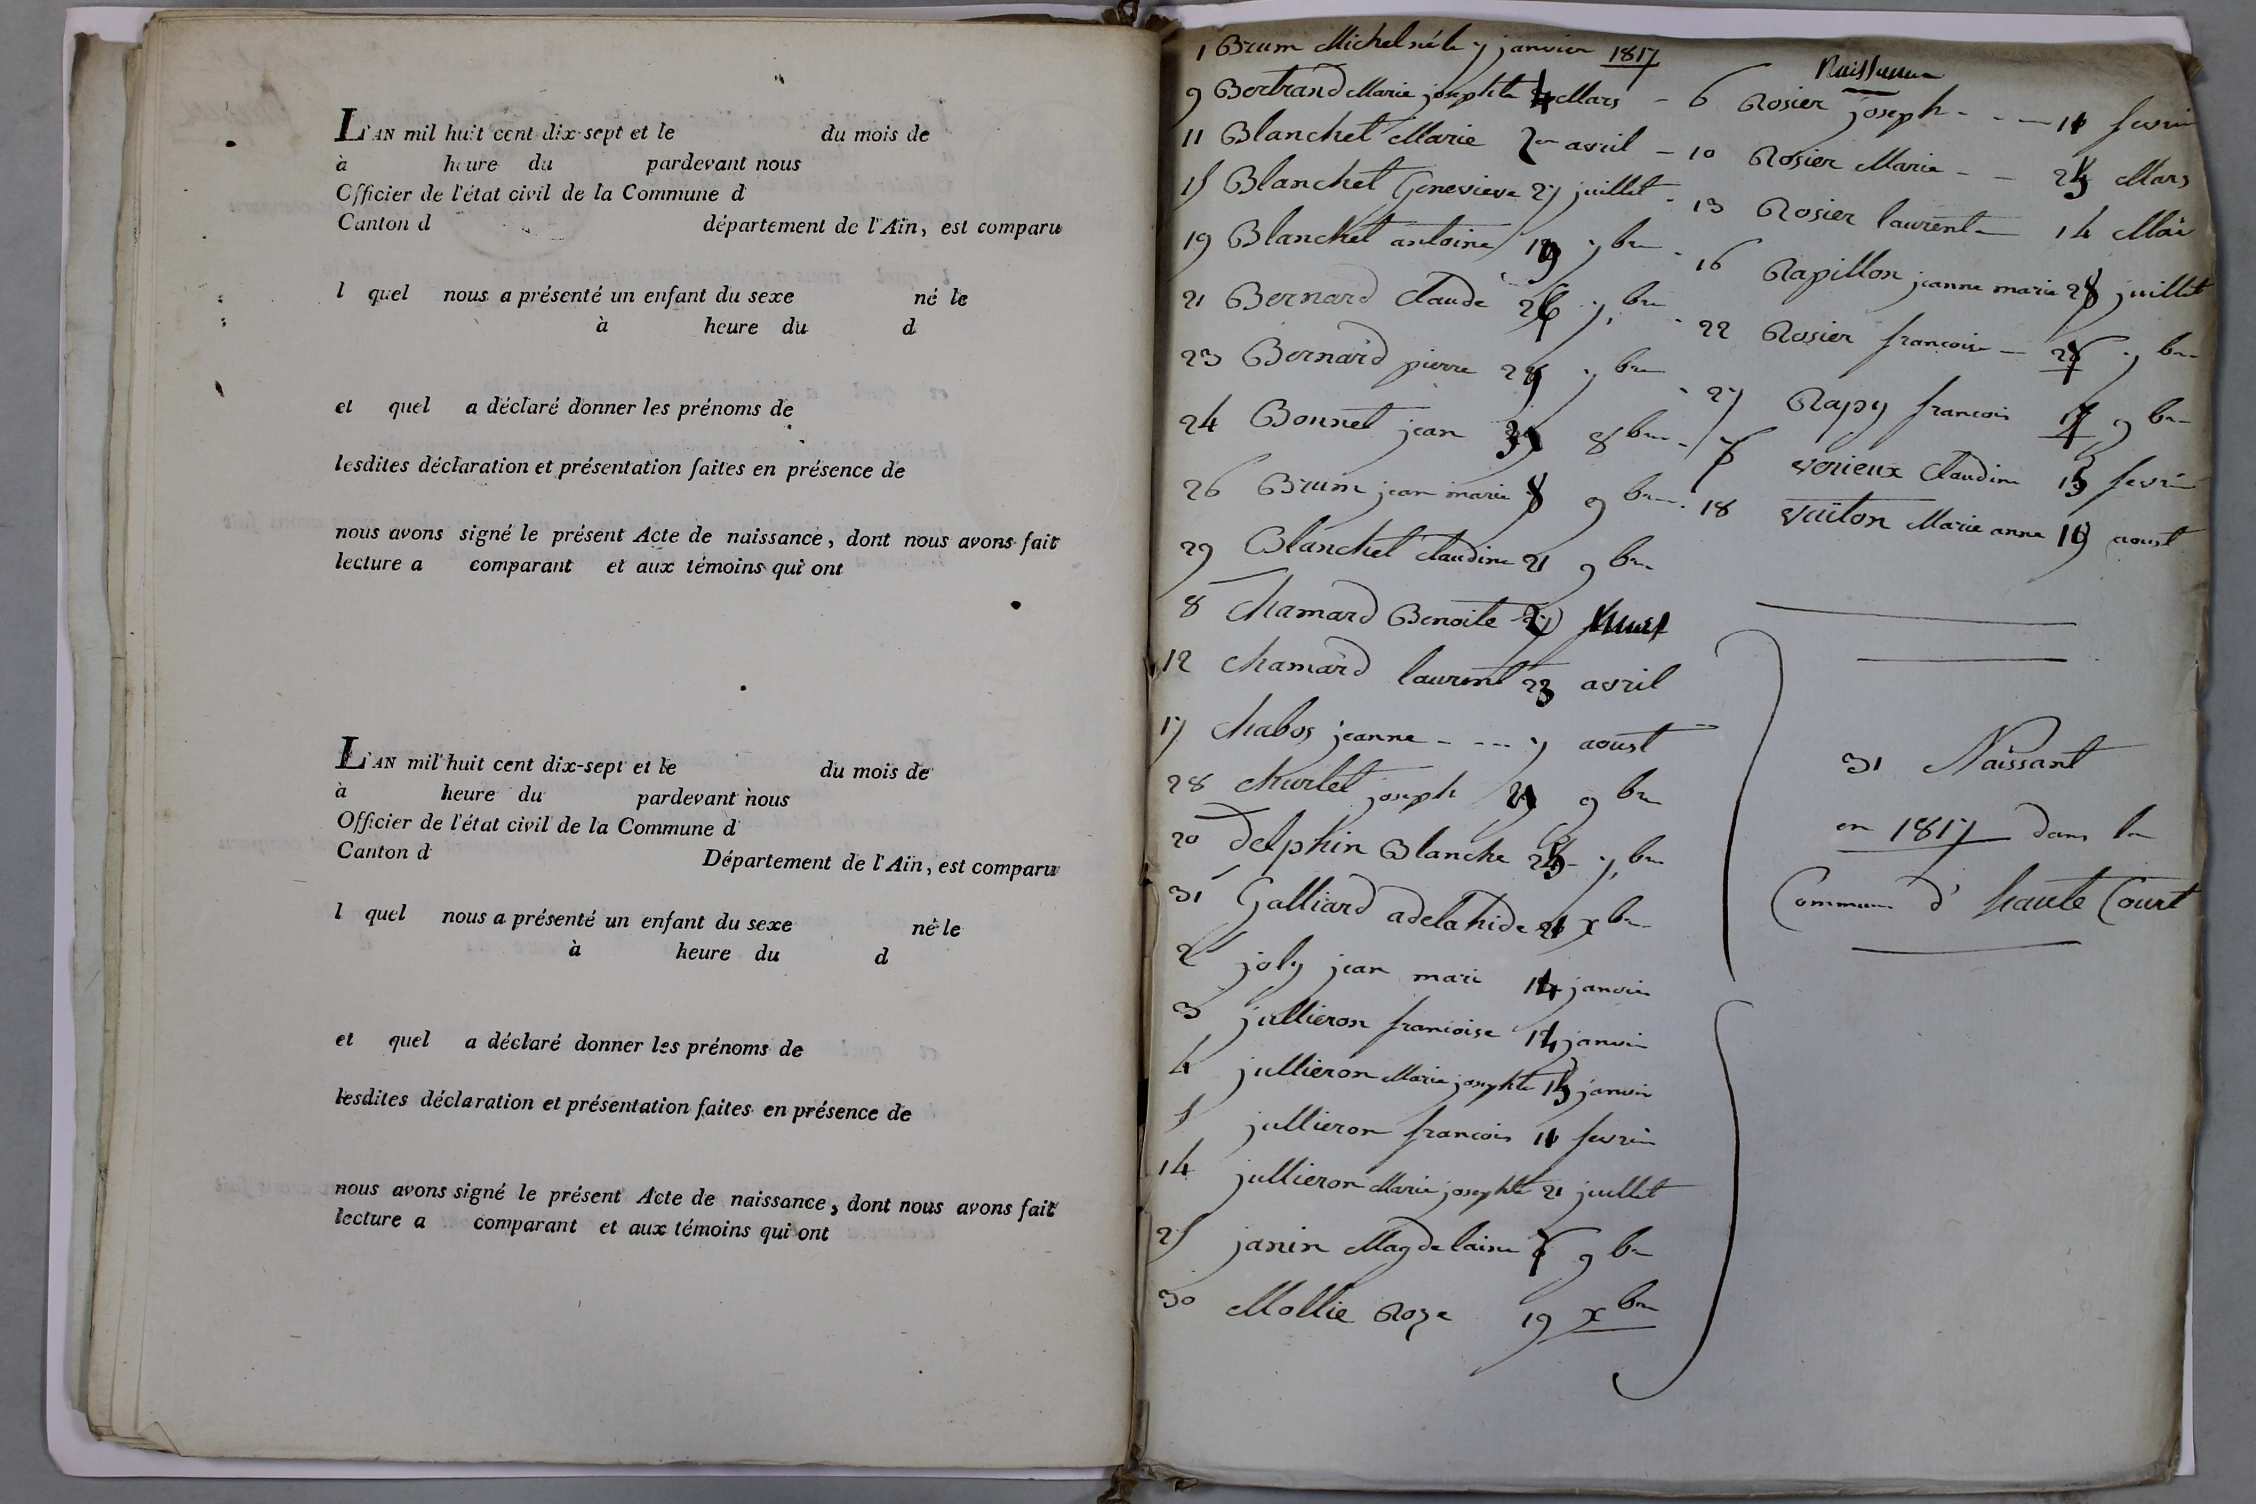 L'AN mil huit cent dix-sept et le du mois de
à heure du pardevant nous
Officier de l'état civil de la Commune d
Canton d département de l'Ain, est comparu
l quel nous a présenté un enfant du sexe né le
à heure du d
et quel a déclaré donner les prénoms de
lesdites déclaration et présentation faites en présence de
nous avons signé le présent Acte de naissance, dont nous avons fait
lecture a comparant et aux témoins qui ont
L'AN mil huit cent dix-sept et le du mois de
à heure du pardevant nous
Officier de l'état civil de la Commune d
Canton d Département de l'Ain, est comparu
l quel nous a présenté un enfant du sexe né le
à heure du d
et quel a déclaré donner les prénoms de
lesdites déclaration et présentation faites en présence de
nous avons signé le présent Acte de naissance, dont nous avons fait
lecture a comparant et aux témoins qui ont
1 Brum Michel né le 7 janvier 1817
9 Bertrand Marie josephte 4 Mars
11 Blanchet Marie avril
15 Blanchet Genevieve 27 juillet
19 Blanchet antoine 7bre
21 Bernard Claude 26 7bre
23 Bernard pierre 7bre
24 Bonnet jean 8bre
26 Brum jean marie 8 9bre
29 Blanchet Claudine 21 9bre
8 Chamard Benoite
12 Chamard laurent 23 avril
17 Chabos jeanne 7 aoust
28 Churlet joseph 9bre
20 Delphin Blanche 7bre
31 Galliard adelahide 21 xbre
2 joly jean marie 14 janvier
3 jullieron francoise 14 janvier
4 jullieron Marie josephte 15 janvier
5 jullieron francois 11 fevrier
14 jullieron Marie josephte 21 juillet
25 janin Magdelaine 9bre
30 Mollie Roze 19 xbre
Naissance
6 Rosier joseph 11 fevrier
10 Rosier Marie Mars
13 Rosier laurent 14 Mai
16 Rapillon jeanne marie 28 juillet
22 Rosier francoise 7bre
27 Rapy francois 9bre
7 vorieux Claudine 15 fevrier
18 vuiton Marie anne aoust
31 Naissant
en 1817 dans la
Commune d'haute Court